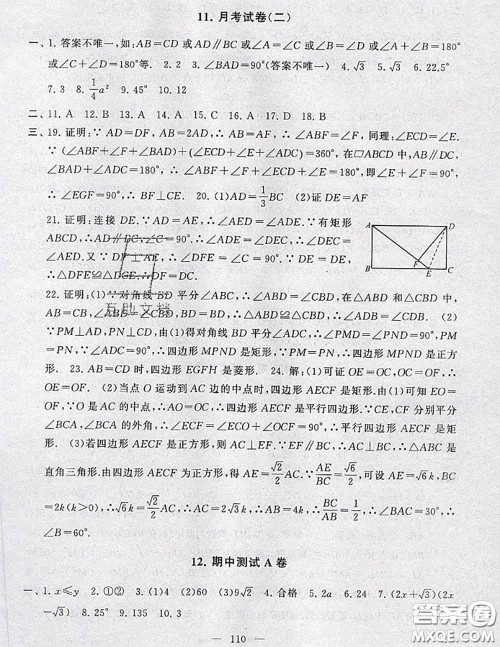 11. 月考试卷(二)
一、1. 答案不唯一,如:AB=CD 或 AD∥BC 或∠A=∠C 或∠B=∠D 或∠A+∠B=180°
或∠C+∠D=180° 2. 2 3. ∠BAD=90°(答案不唯一) 4. √3 5. √3 6. 22.5°
7. 3 8. 1/4 a² 9. 45° 10. 12
二、11. A 12. A 13. A 14. A 15. C 16. A 17. D 18. B
三、19. 证明:∵AD=DF,AB=2AD,∴AB=AF=,∴∠ABF=∠F,同理:∠ECD=∠E.
∵(∠ABF+∠F+∠BAD)+(∠ECD+∠E+∠ADC)=360°,在▱ABCD 中,AB∥DC,
∠BAD+∠ADC=180°,∴∠ABF+∠F+∠ECD+∠E=180°,即∠F+∠E=90°,
∴∠EGF=90°,∴BF⊥CE. 20. (1)AD=1/3 BC (2)证 DE=AF
21. 证明:连接 DE.∵AD=AE,∴∠AED=∠ADE.∵有矩形
ABCD,∴AD∥BC,∠C=90°.∴∠ADE=∠DEC,∴∠DEC=
∠AED.又∵DF⊥AE,∴∠DFE=∠C=90°.∵DE=DE,
∴△DFE≌△DCE,∴DF=DC.
A
D
F
B
E
C
22. 证明:(1)∵对角线 BD 平分∠ABC,∴∠ABD=∠CBD,在△ABD 和△CBD 中,
AB=CB,∠ABD=∠CBD,BD=BD,∴△ABD≌△CBD,∴∠ADB=∠CDB.
(2)∵PM⊥AD,PN⊥CD,由(1)得对角线 BD 平分∠ADC,∠PMD=∠PND=90°,∴
PM=PN,∵∠ADC=90°,∴四边形 MPND 是矩形,∵PM=PN,∴四边形 MPND 是
正方形. 23. AB=CD 时,四边形 EGFH 是菱形. 24. (1)可证 OE=OC,OC=OF,∴
OE=OF. (2)当点 O 运动到 AC 边的中点时,四边形 AECF 是矩形.由(1)可知 EO
=OF.∵O 是 AC 的中点,∴OA=OC,∴四边形 AECF 是平行四边形.∵CE、CF 分别平分
∠BCA,∠BCA 的外角,∴∠ECF=∠ECO+∠OCF=90°,∴四边形 AECF 是矩
形. (3)若四边形 AECF 是正方形,则 AC⊥EF.∵EF∥BC,∴AC⊥BC,∴△ABC 是
直角三角形.由四边形 AECF 为正方形,得 AE=√2/2 AC,∵AE/BC=√6/2,可设 AE=√6k,BC
=2k(k>0),∴√6k=√2/2 AC,∴AC=2√3k,AB=4k,∴BC/AB=1/2,∴∠BAC=30°,∴
∠B=60°.
12. 期中测试 A 卷
一、1. x≤y 2. ①② 3. (1)4 (2)60 (3)9√2 4. 合格 5. 2a 6. 24 7. (2x+√3)(2x
-√3) 8. 25° 9. 135 10. 3
110
互助文档
答案圈
MXQE.COM